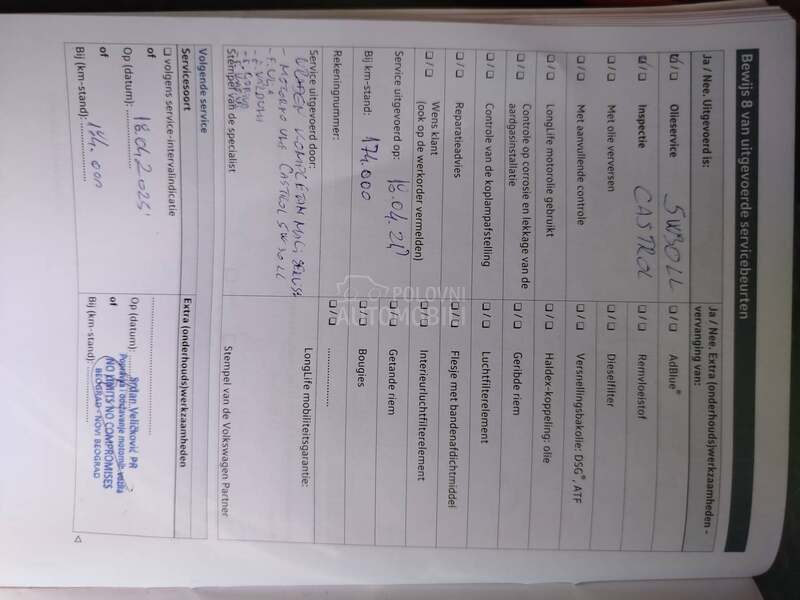 Bewijs 8 van uitgevoerde servicebeurten
Ja / Nee. Uitgevoerd is:
☑/☐ Olieservice 5W30 LL
☑/☐ Inspectie CASTROL
☐/☐ Met olie verversen
☐/☐ Met aanvullende controle
☐/☐ LongLife motorolie gebruikt
☐/☐ Controle op corrosie en lekkage van de
aardgasinstallatie
☐/☐ Controle van de koplampafstelling
☐/☐ Reparatieadvies
☐/☐ Wens klant
(ook op de werkorder vermelden)
Service uitgevoerd op: 18.04.24
Bij km-stand: 174.000
Rekeningnummer:
Service uitgevoerd door:
MALI SERVIS
- MOTORNO ULJE CASTROL 5W30 LL
Stempel van de specialist
Ja / Nee. Extra (onderhouds)werkzaamheden -
vervanging van:
☐/☐ AdBlue®
☐/☐ Remvloeistof
☐/☐ Dieselfilter
☐/☐ Versnellingsbakolie: DSG®, ATF
☐/☐ Haldex-koppeling: olie
☐/☐ Geribde riem
☐/☐ Luchtfilterelement
☐/☐ Flesje met bandenafdichtmiddel
☐/☐ Interieurluchtfilterelement
☐/☐ Getande riem
☐/☐ Bougies
☐/☐ ....................
LongLife mobiliteitsgarantie:
Stempel van de Volkswagen Partner
Volgende service
Servicesoort
☐ volgens service-intervalindicatie
of
Op (datum): 18.04.2025
of
Bij (km-stand):
Extra (onderhouds)werkzaamheden
Op (datum):
of
Bij (km-stand):
Srđan Veličković PR
Popravka i održavanje motornih vozila
NO LIMITS NO COMPROMISES
BEOGRAD - NOVI BEOGRAD
POLOVNI
AUTOMOBILI